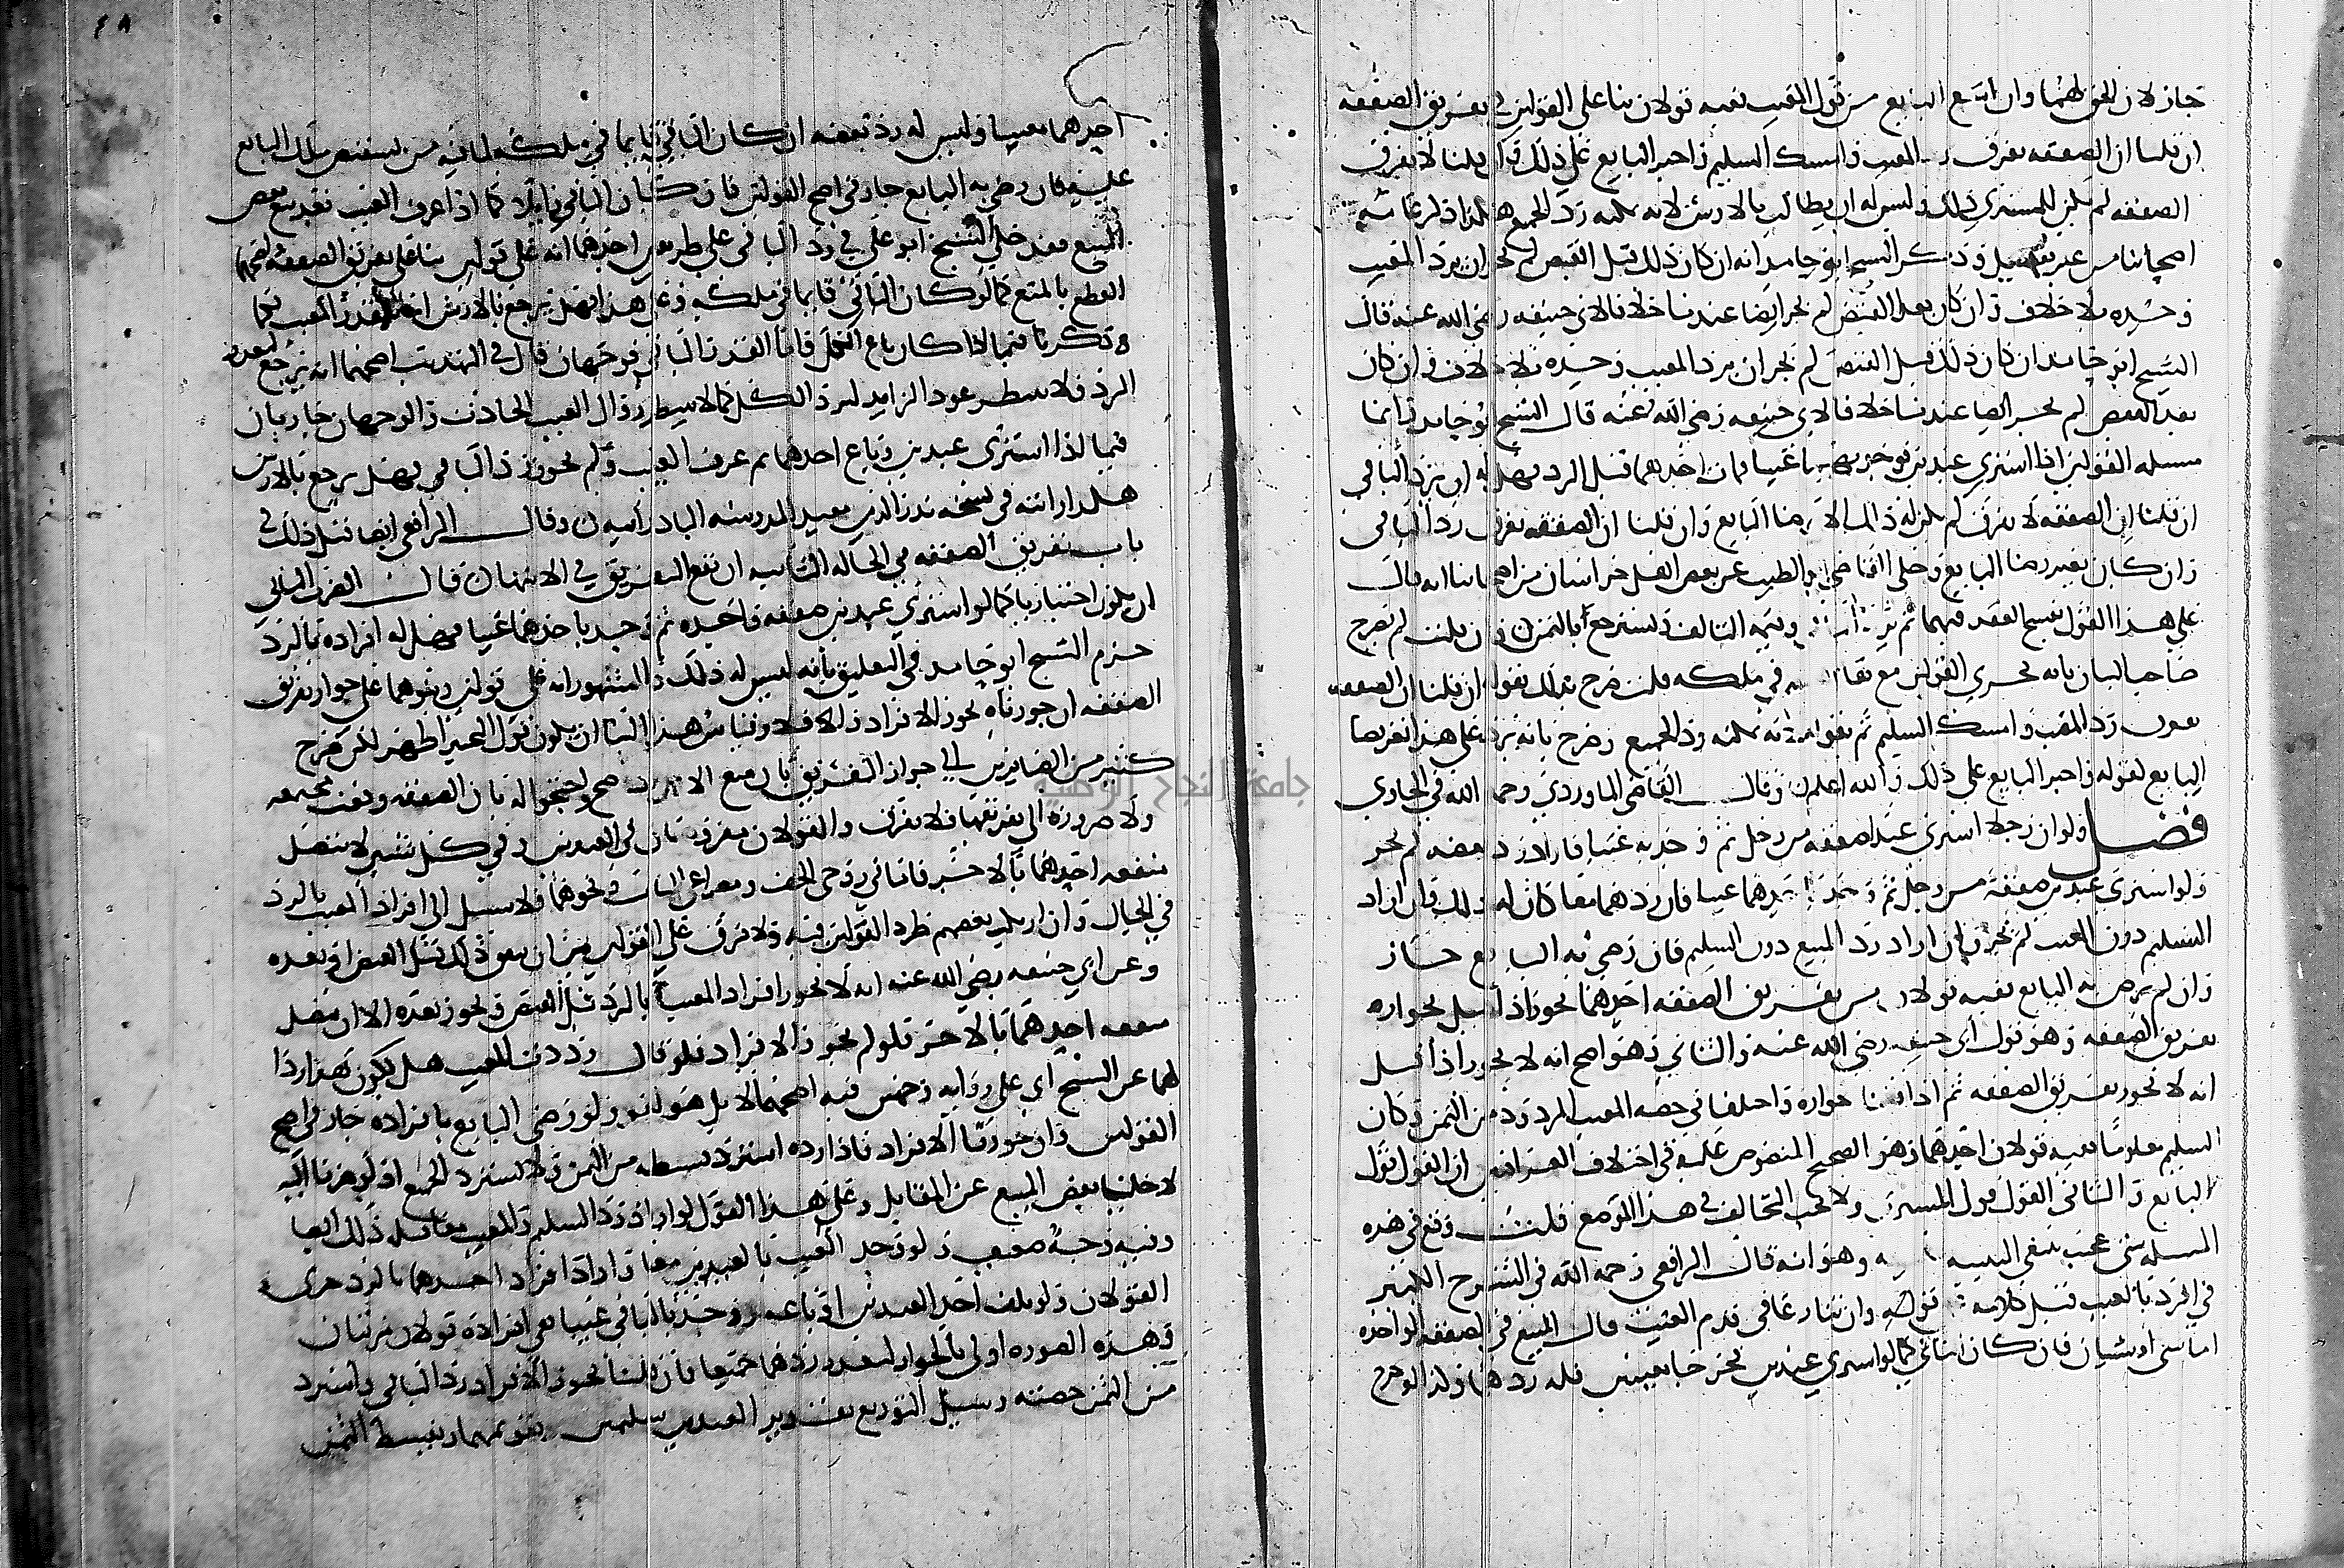 جاز لان الحق لهما وان امتنع البايع من قبول المعيب ففيه قولان بنا على القولين في تفريق الصفقه
ان قلنا ان الصفقه تفرق رد المعيب وامسك السليم واجبر البايع على ذلك وان قلنا لا تفرق
الصفقه لم يكن للمشتري ذلك وليس له ان يطالب بالارش لانه يمكنه رد الجميع هكذا ذكر عامة
اصحابنا من غير تفصيل وذكر الشيخ ابو حامد انه ان كان ذلك قبل القبض لم يجز ان يرد المعيب
وحده بلا خلاف وان كان بعد القبض لم يجز ايضا عندنا خلافا لابي حنيفه رضي الله عنه قال
الشيخ ابو حامد ان كان ذلك قبل القبض لم يجز ان يرد المعيب وحده بلا خلاف وان كان
بعد القبض لم يجز ايضا عندنا خلافا لابي حنيفه رضي الله عنه قال الشيخ ابو حامد وانما
مسله القولين اذا اشترى عبدين فوجد بهما عيبا فمات احدهما قبل الرد فهل له ان يرد الباقي
ان قلنا ان الصفقه لا تفرق لم يكن له ذلك الا برضا البايع وان قلنا ان الصفقه تفرق رد الباقي
وان كان بغير رضا البايع وحكى القاضي ابو الطيب عن بعض اهل خراسان من اصحابنا انه قال
على هذا القول يفسخ العقد فيهما ثم يرد الباقي وقيمه التالف ويسترجع الثمن وان قلت لم يصرح
صاحب البيان بانه يجري القولين مع بقا في ملكه قلت صرح بذلك بقوله ان قلنا ان الصفقه
تفرق رد المعيب وامسك السليم ثم بقوله لانه يمكنه رد الجميع وصرح بانه يرد على هذا تفريعا
البايع لقوله واجبر البايع على ذلك والله اعلم وقال القاضي الماوردي رحمه الله في الحاوي
فصل ولو ان رجلا اشترى عبدا صفقه من رجل ثم وجد به عيبا فاراد رد بعضه لم يجز
ولو اشترى عبدين صفقة من رجل ثم وجد باحدهما عيبا فان ردهما معا كان له ذلك وان اراد
التسليم دون المعيب لم يجز وان اراد رد المبيع دون السليم فان رضي به البايع جاز
وان لم يرض به البايع ففيه قولان من تفريق الصفقه احدهما يجوز اذا قيل بجواز
تفريق الصفقه وهو قول ابي حنيفه رضي الله عنه والثاني وهو اصح انه لا يجوز اذا قيل
انه لا يجوز تفريق الصفقه ثم اذا قلنا جوازه واختلفا في حصه المعيب المردود من الثمن وكان
السليم معلوما ففيه قولان احدهما وهو الصحيح المنصوص عليه في اختلاف العراقيين ان القول قول
البايع والثاني القول قول المشتري ولا يجب التحالف في هذا الموضع قلت وقع في هذه
المسله شي عجب ينبغي التنبيه وهو انه قال الرافعي رحمه الله في الشرح الكبير
في الرد بالعيب قبل كلامه قوله وان تنازعا في قدم العيب قال المبيع في الصفقه الواحده
اما شي او شيان فان كان الثاني كما لو اشترى عبدين فخرجا معيبين فله ردهما وكذا لو خرج
احدهما معيبا وليس له رد بعضه ان كان الباقي قايما في ملكه لما فيه من تشقيص ملك البايع
عليه فان رضي به البايع جاز في اصح القولين فان كان الباقي زايلا كما اذا عرف العيب بعد بيع بعض
المبيع فقد حكى الشيخ ابو علي في رد الباقي على طريقين احدهما انه على قولين بنا على تفريق الصفقه واصحهما
القطع بالمنع كما لو كان الباقي قايما في ملكه وعلى هذا فهل يرجع بالارش اما للقدر المبيع فكما
ذكرنا فيما اذا كان باع الكل واما القدر الباقي فوجهان قال في التهذيب اصحهما انه يرجع لتعذر
الرد ولا ينتظر عود الزايل ليرد الكل كما لا ينتظر زوال العيب الحادث والوجهان جاريان
فيما اذا اشترى عبدين وباع احدهما ثم عرف العيب ولم نجوز رد الباقي فهل يرجع بالارش
هكذا رايته في نسخه بدر الدين معيد المدرسه البادرائيه وقال الرافعي ايضا قبل ذلك في
باب تفريق الصفقه في الحاله الثانيه ان يقع التفريق في الانتهاء قال الضرب الثاني
ان يكون اختياريا كما لو اشترى عبدين صفقه واحده ثم وجد باحدهما عيبا فهل له افراده بالرد
جزم الشيخ ابو حامد في التعليق بانه ليس له ذلك والمشهور انه على قولين وبنوهما على جواز تفريق
الصفقه ان جوزناه يجوز الافراد والا فلا وقياس هذا البنا ان يكون قول التجويز اظهر لكن صرح
كثير من الصايرين الى جواز التفريق بان منع الافراد اصح واحتجوا له بان الصفقه وقعت مجتمعه
ولا ضروره الى تفريقها فلا تفرق والقولان مفروضان في العبدين وفي كل شيين لا تتصل
منفعه احدهما بالاخر فاما في زوجي الخف ومصراعي الباب ونحوهما فلا سبيل الى افراد المعيب بالرد
في الحال وان ارتكب بعضهم طرد القولين فيه ولا فرق على القولين بين ان يتفق ذلك قبل القبض او بعده
وعن ابي حنيفه رضي الله عنه انه لا نجوز افراد المعيب بالرد قبل القبض ويجوز بعده الا ان تتصل
منفعه احدهما بالاخر فلو لم نجوز الافراد فلو قال رددت المعيب هل يكون هذا ردا
لهما عن الشيخ ابي علي روايه وجهين فيه اصحهما لا بل هو لغو ولو رضي البايع بافراده جاز في اصح
القولين وان جوزنا الافراد فاذا رده استرد بقسطه من الثمن ولا يسترد الجميع اذ لو صرنا اليه
لاخلينا بعض المبيع عن المقابل وعلى هذا القول لو اراد رد السليم والمعيب معا فله ذلك ايضا
وفيه وجه ضعيف ولو وجد العيب بالعبدين معا واراد افراد احدهما بالرد جرى
القولان ولو تلف احد العبدين او باعه ووجد بالباقي عيبا ففي افراده قولان مرتبان
وهذه الصوره اولى بالجواز لتعذر ردهما جميعا فان قلنا يجوز الافراد رد الباقي واسترد
من الثمن حصته وسبيل التوزيع تقدير العبدين سليمين وتقويمهما وتقسيط الثمن